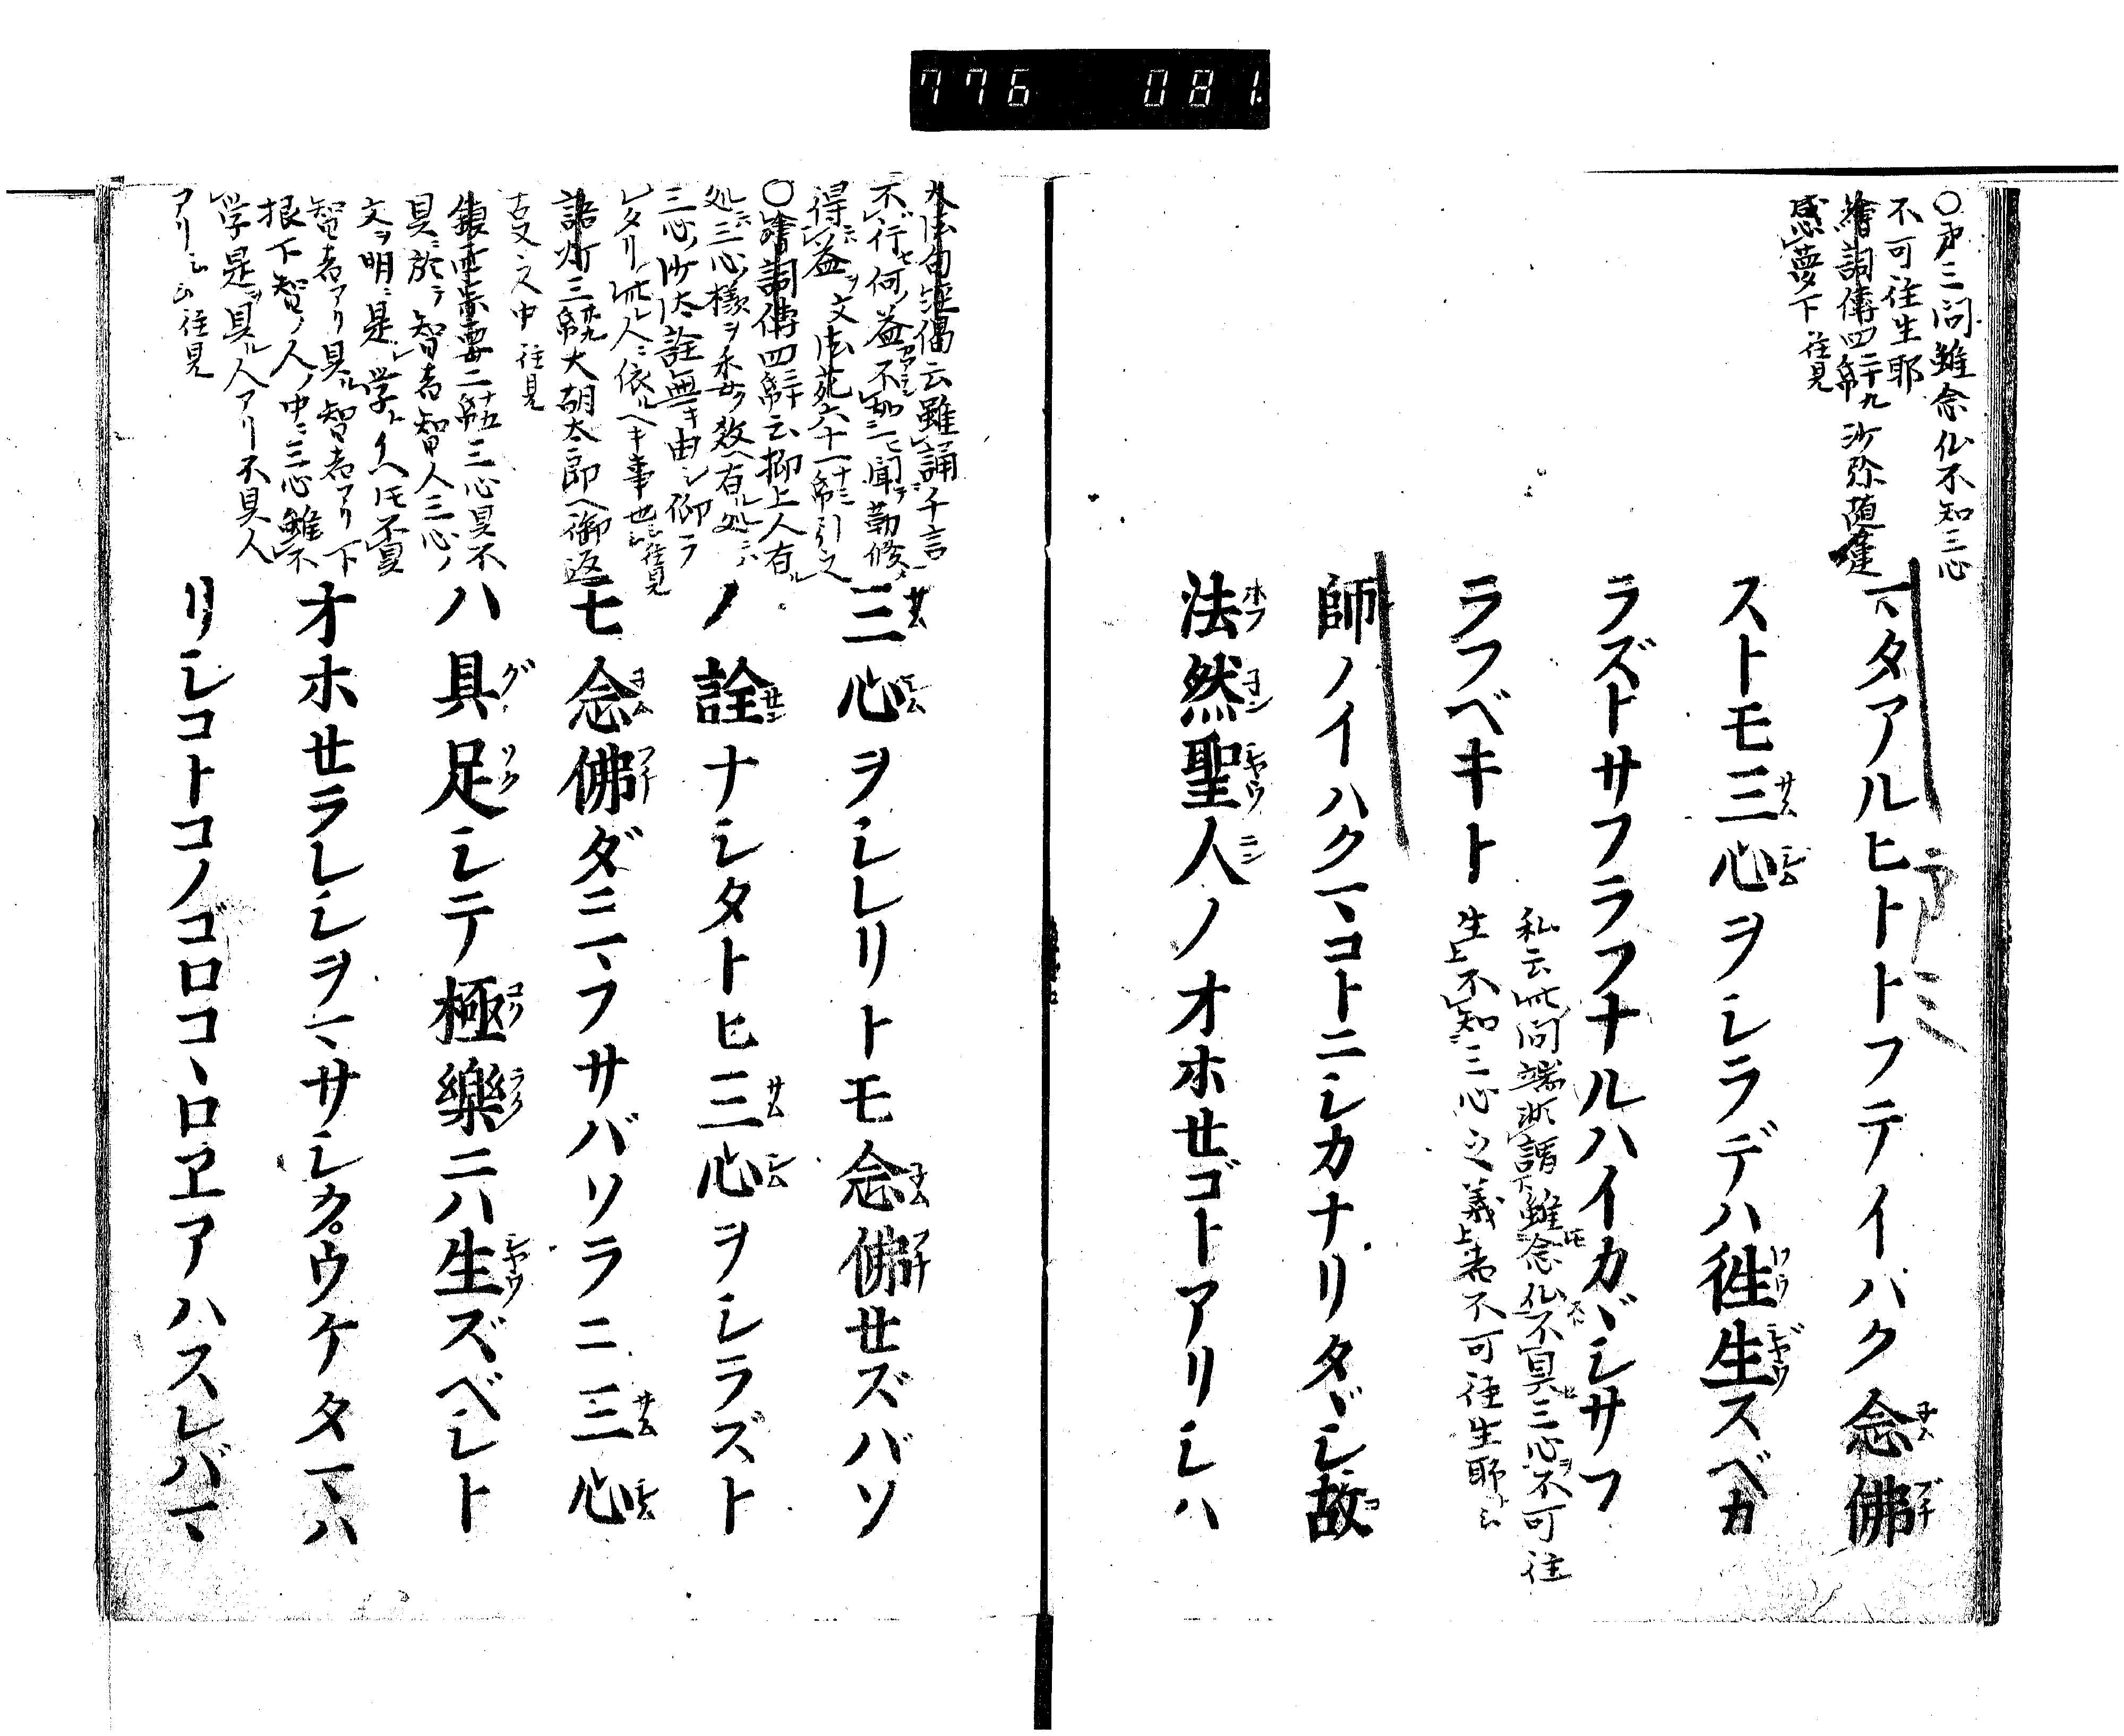 776 081.
○第三問雖念仏不知三心
不可往生耶
繪詞傳四二十九帋沙弥随蓮
感夢下往見
マタアルヒトトフテイハク念佛
ストモ三心ヲシラデハ往生スベカ
ラズトサフラフナルハイカヾシサフ
ラフベキト
私云此問端欤謂雖念仏不具三心不可往
生上不知三心之義上者不可往生耶
師ノイハクマコトニシカナリタヾシ故
法然聖人ノオホセゴトアリシハ
法句經偈云雖誦千言
不行何益不如一聞勤修
得益文法苑六十一十三帋引之
○繪詞傳四三十帋云抑上人有
処三心様ヲ委教有処
三心沙汰詮無キ由仰ラ
レタリ此人ニ依ヘキ事也云云往見
語灯三大朝太郎ヘ御返
古文之中往見
鎮西宗要二十五帋三心具不
具於テ智者智人三心ノ
文ヲ明是学トイヘトモ不具
智者アリ具智者アリ下
根下智ノ人ノ中三心雖不
学是具人アリ不具人
アリ往見
三心ヲシレリトモ念佛セズバソ
ノ詮ナシタトヒ三心ヲシラズト
モ念佛ダニマフサバソラニ三心
ハ具足シテ極樂ニハ生ズベシト
オホセラレシヲマサシクウケタマハ
リシコトコノゴロコヽロヱアハスレバマ